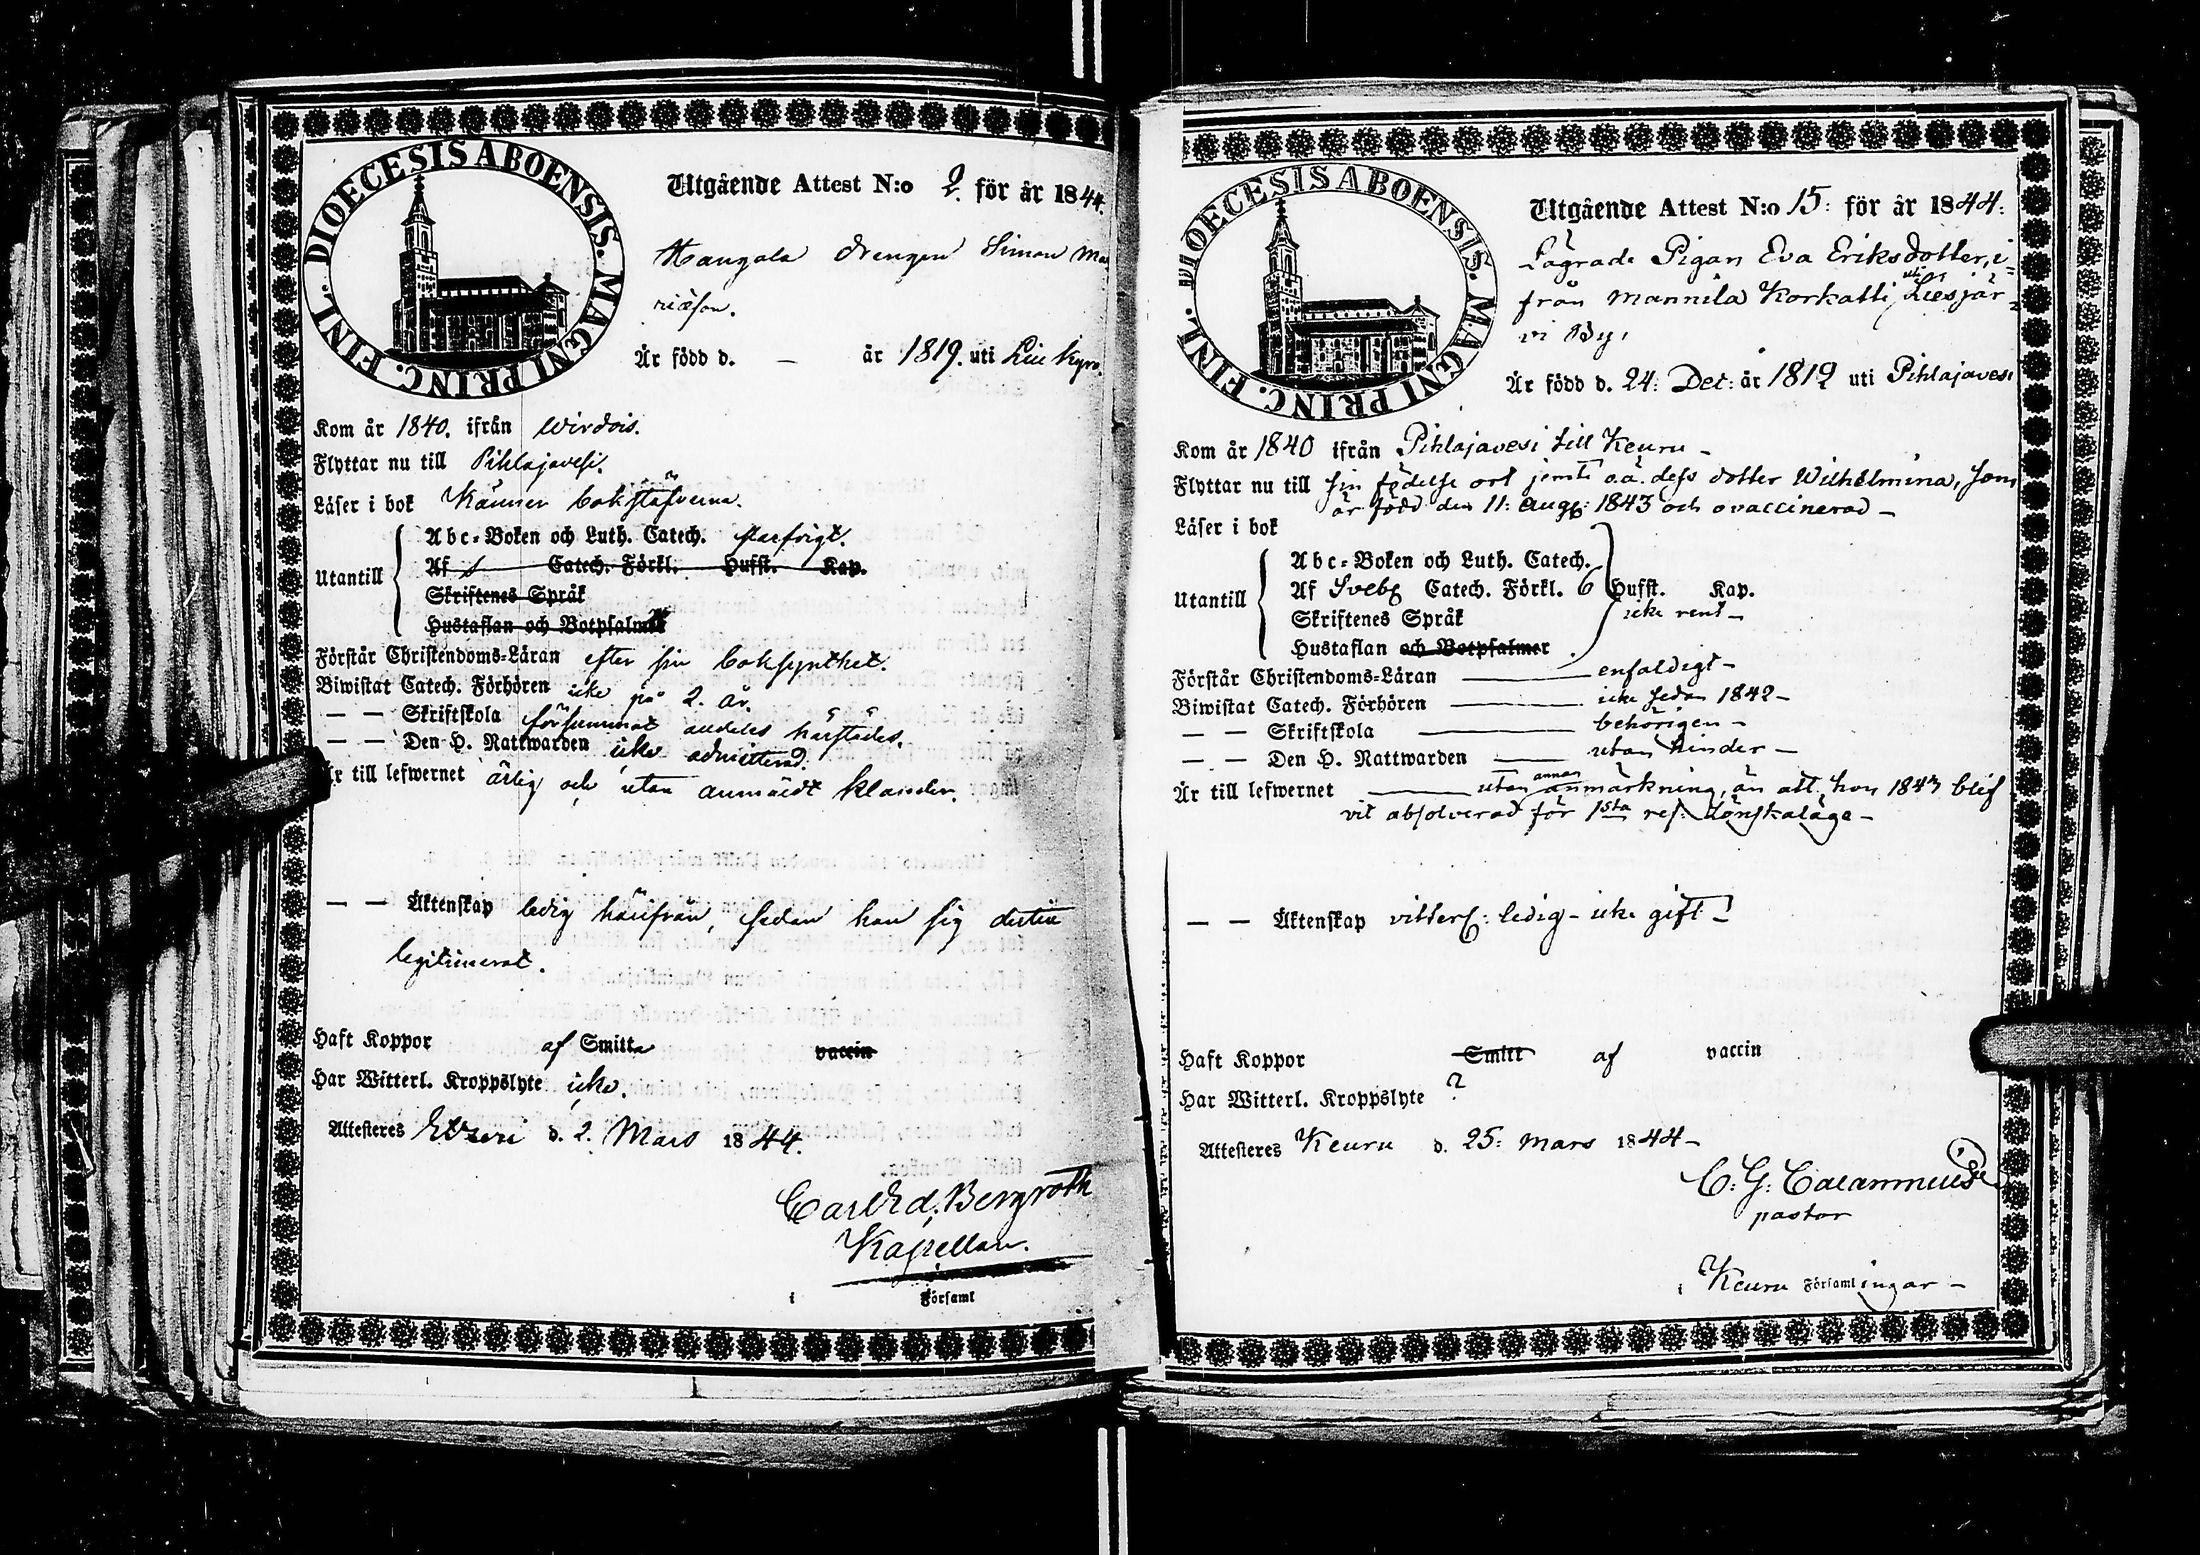 DIOECESIS ABOENSIS. MAGNI PRINC. FINL.
Utgående Attest N:o 2. för år 1844.
Drengen Simon Ma
riæson.
Är född d. — år 1819. uti Kyro
Kom år 1840. ifrån Wirdois.
Flyttar nu till Pihlajavesi.
Läser i bok Känner bokstäfverna.
Abc-Boken och Luth. Catech.
Utantill Af Catech. Förkl. Hufst. Kap.
Skriftenes Språk
Hustaflan och Botpsalmer
Förstår Christendoms-Läran efter sin boksynthet.
Biwistat Catech. Förhören icke på 2. år.
— — Skriftskola försummat härstädes.
— — Den H. Nattwarden icke admitterad.
Är till lefwernet ärlig och utan anmäldt klander.
— — Äktenskap ledig härifrån, sedan han sig
legitimerat.
Haft Koppor af Smitta vaccin
Har Witterl. Kroppslyte icke.
Attesteres Etzeri d. 2. Mars 1844.
Carl Ed. Bergroth
Kapellan.
i Församl
DIOECESIS ABOENSIS. MAGNI PRINC. FINL.
Utgående Attest N:o 15: för år 1844:
Lägrade Pigan Eva Eriksdotter, i
från Mannila Korkatti, uti Liesjär-
vi By,
Är född d. 24: Dec: år 1819 uti Pihlajavesi
Kom år 1840 ifrån Pihlajavesi till Keuru —
Flyttar nu till sin födelse ort jemte o.ä. dess dotter Wilhelmina, som
är född den 11: Aug: 1843 och ovaccinerad —
Läser i bok
Abc-Boken och Luth. Catech.
Utantill Af Sveb: Catech. Förkl. 6 Hufst. Kap.
Skriftenes Språk icke rent —
Hustaflan och Botpsalmer
Förstår Christendoms-Läran — enfaldigt —
Biwistat Catech. Förhören — icke sedan 1842 —
— — Skriftskola — behörigen —
— — Den H. Nattwarden — utan hinder —
Är till lefwernet — utan annan anmärkning, än att hon 1843 blif
vit absolverad för 1sta res: Lönskaläge —
— — Äktenskap vitterl: ledig — icke gift —
Haft Koppor Smitt af vaccin
Har Witterl. Kroppslyte ?
Attesteres Keuru d. 25: Mars 1844 —
C: G: Calamnius
pastor
i Keuru Församlingar —